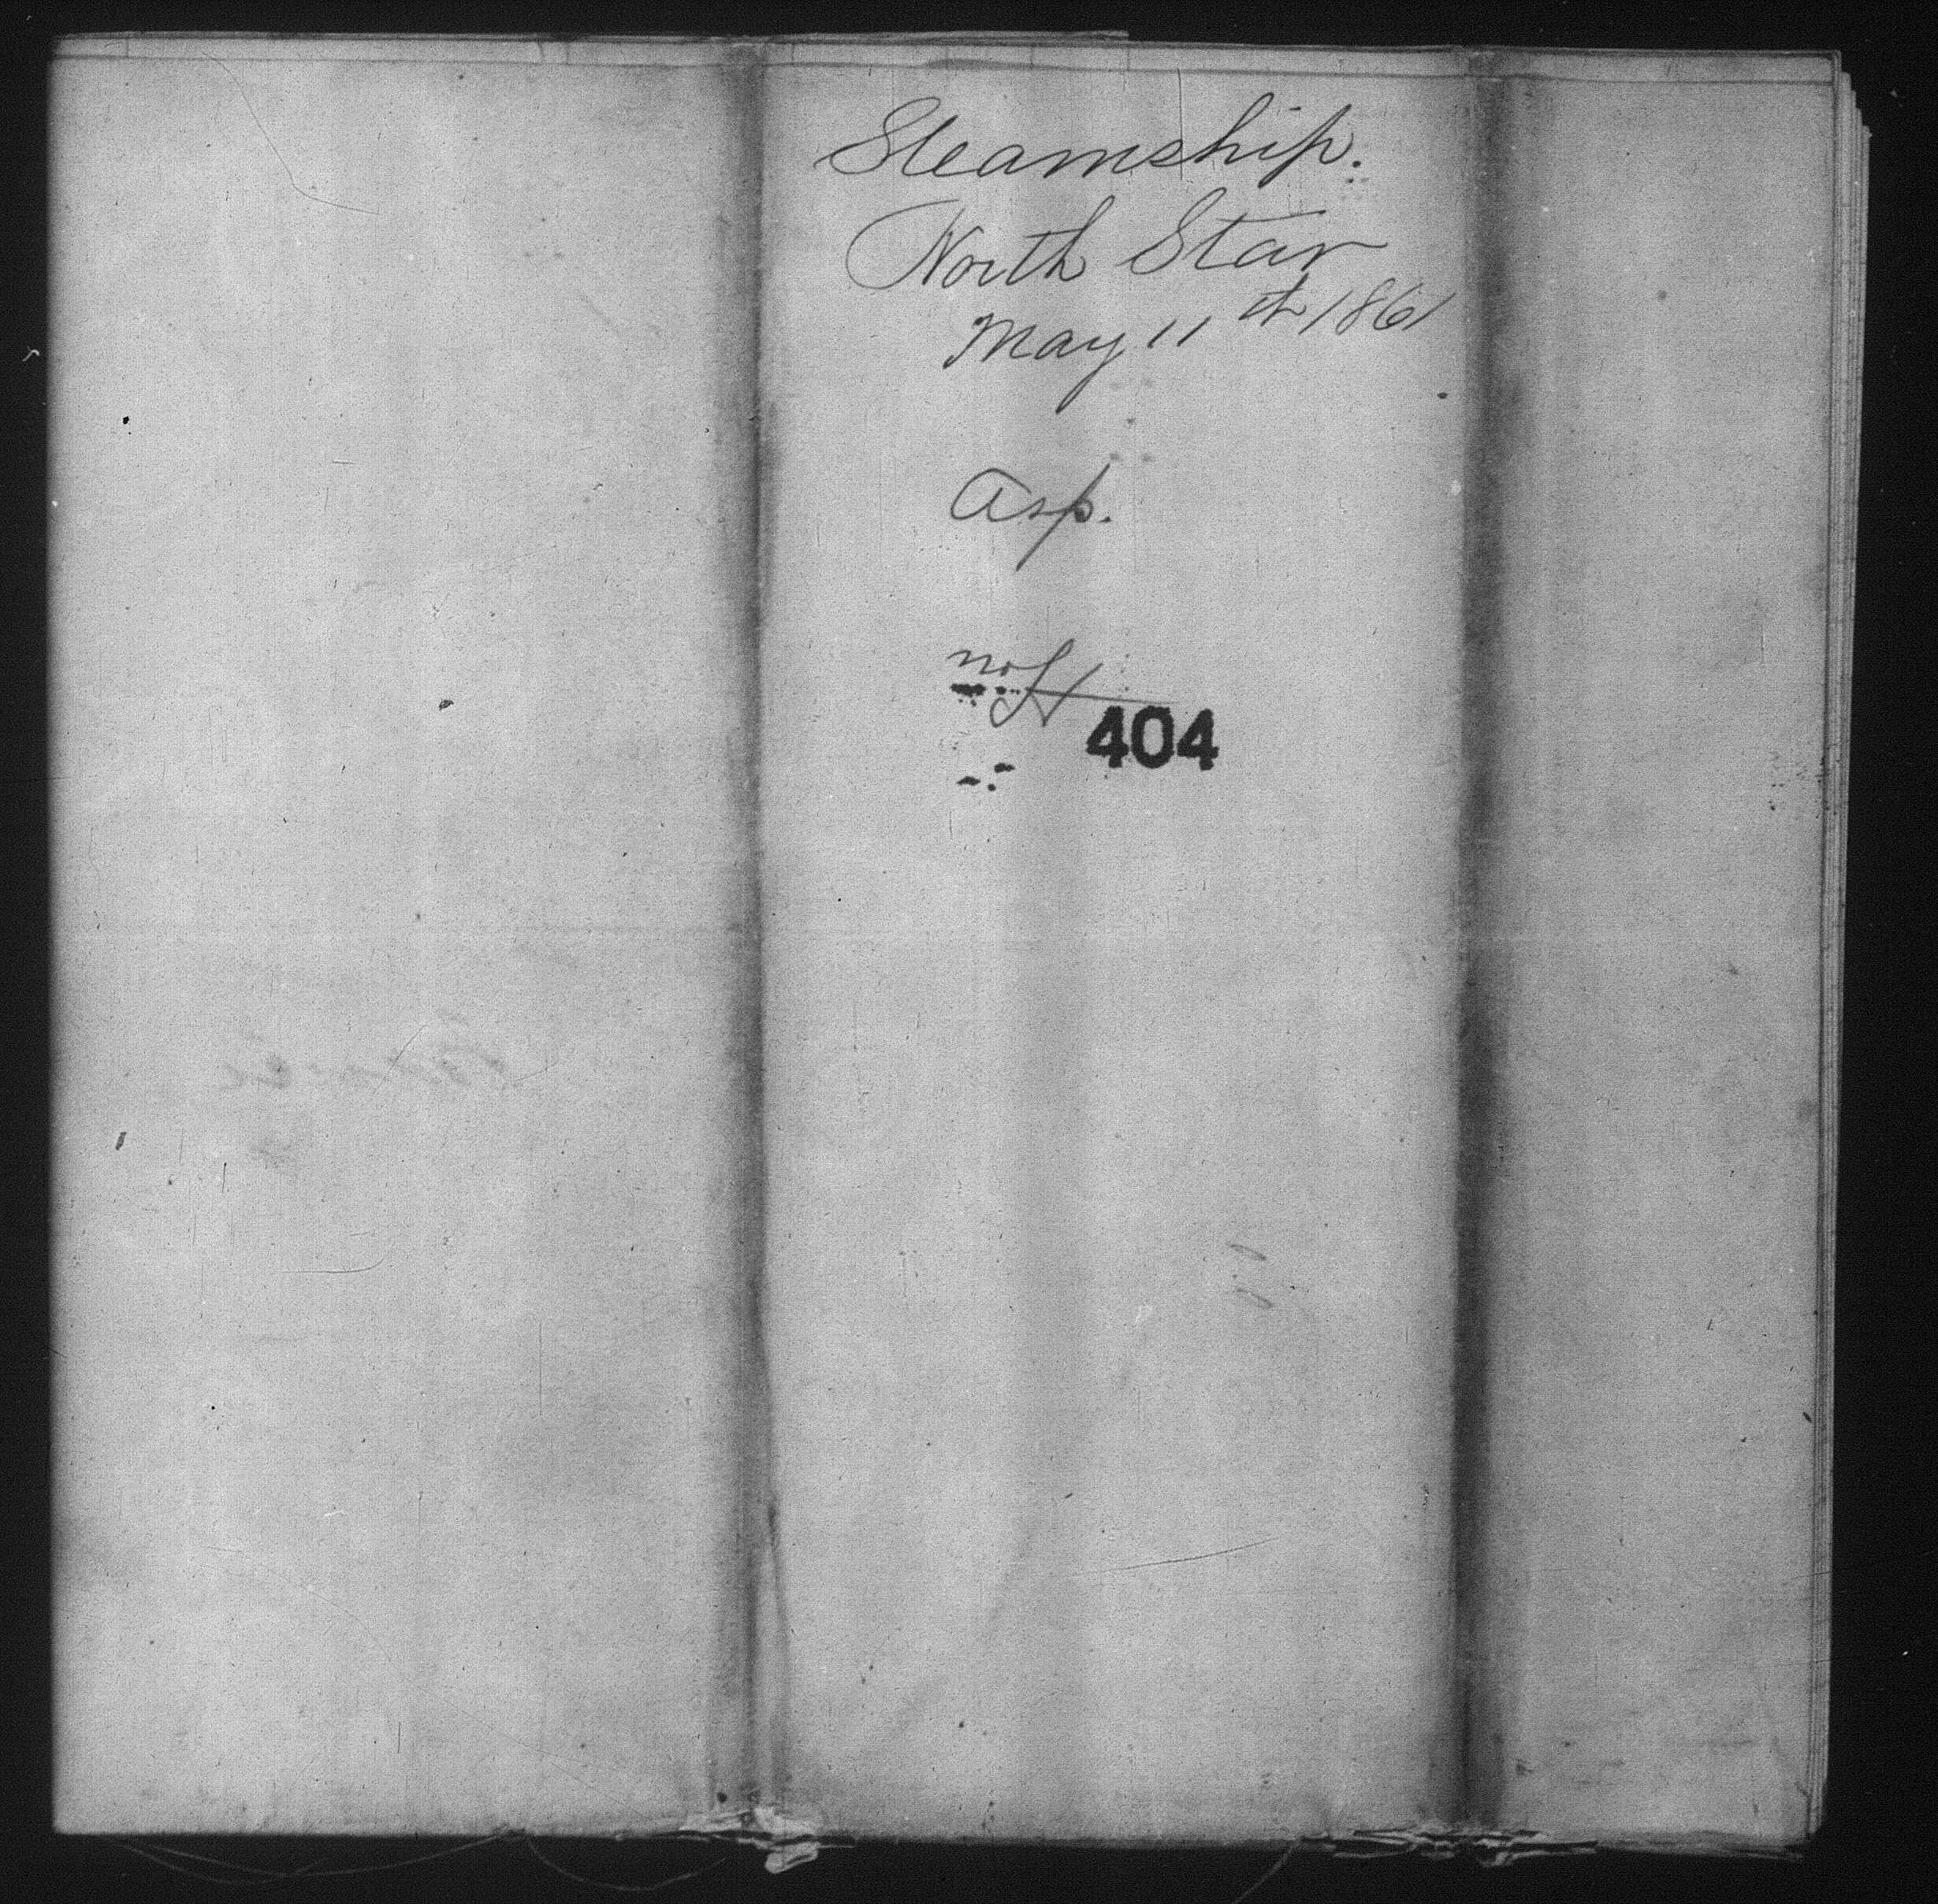 Steamship.
North Star
May 11th 1861
Asp.
no
404